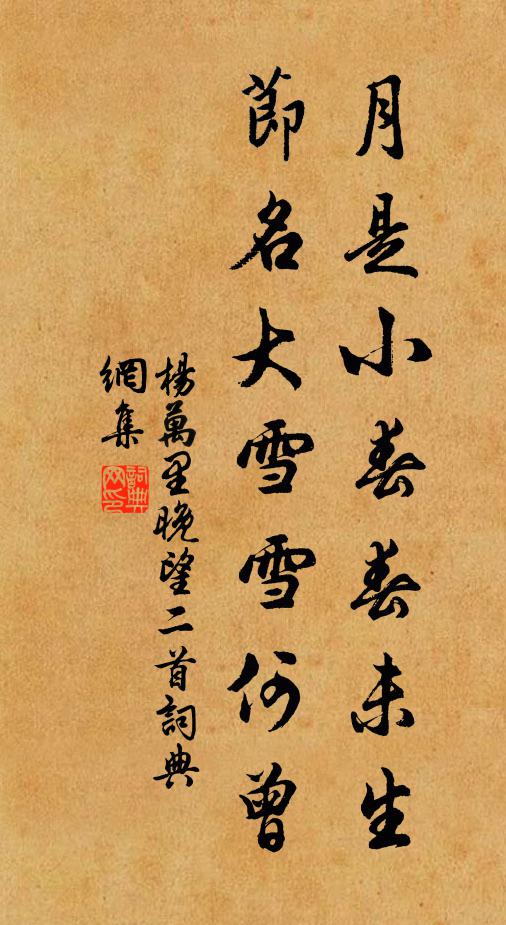 月是小春春未生
節名大雪雪何曾
楊萬里晚望二首詞典
網集
詞典網印